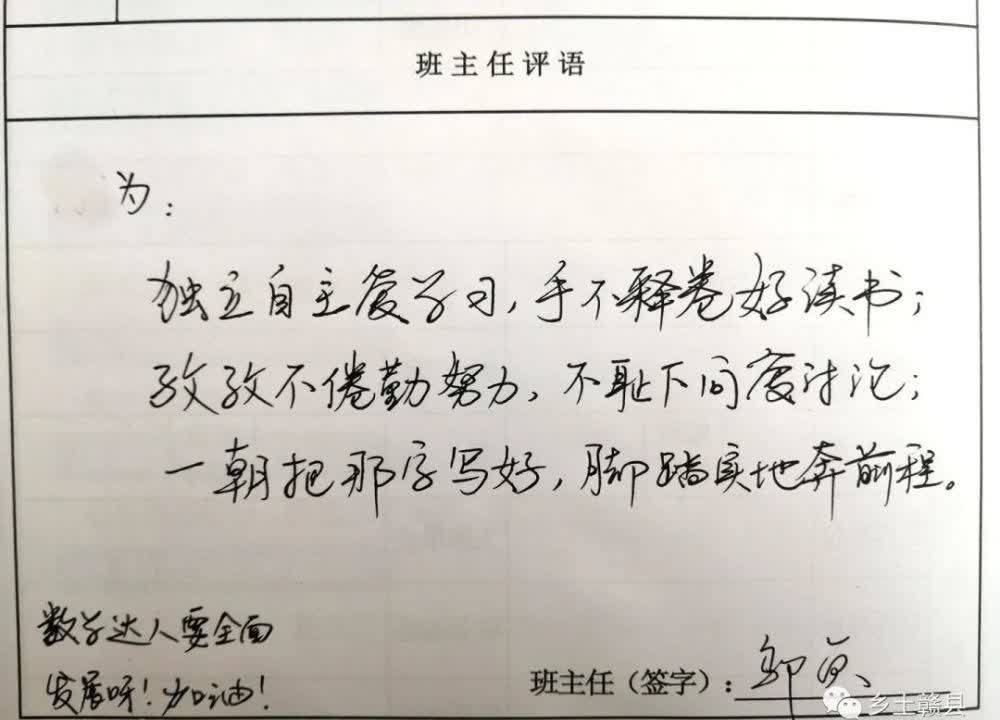 班主任评语
为:
独立自主爱学习,手不释卷好读书;
孜孜不倦勤努力,不耻下问爱讨论;
一朝把那字写好,脚踏实地奔前程。
数学达人要全面
发展呀!加油!
班主任(签字):
乡土赣县